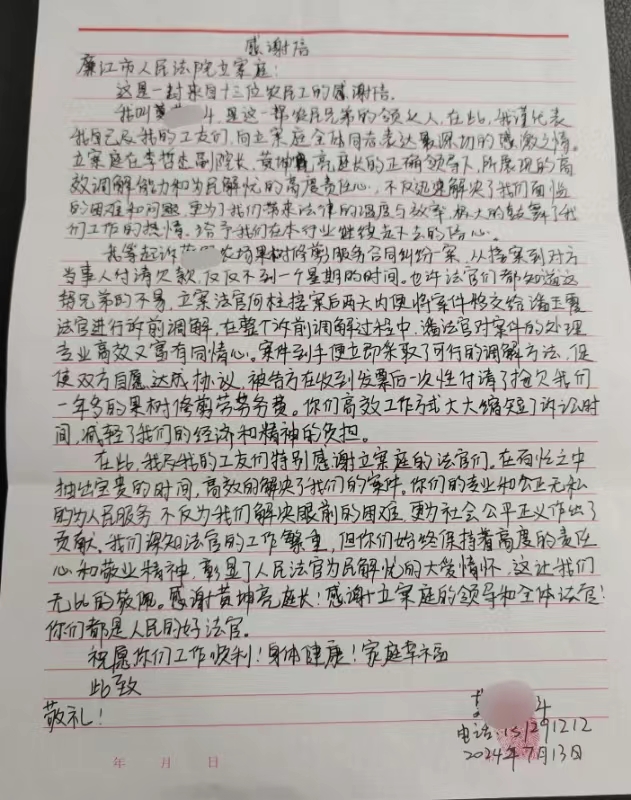 感谢信
廉江市人民法院立案庭:
这是一封来自十三位农民工的感谢信。
我叫黄 斗,是这一帮农民兄弟的领头人,在此,我谨代表
我自己及我的工友们,向立案庭全体同志表达最深切的感激之情。
立案庭在李哲建副院长、黄坤亮庭长的正确领导下,所展现的高
效调解能力和为民解忧的高度责任心,不仅迅速解决了我们面临
的困难和问题,更为了我们带来法律的温度与效率,极大的鼓舞了我
们工作的热情,给予我们在本行业继续走下去的信心。
我等起诉 农场果树修剪服务合同纠纷一案,从接案到对方
当事人付清欠款,仅仅不到一个星期的时间。也许法官们都知道这
帮兄弟的不易,立案法官何柱接案后两天内便将案件移交给潘玉霞
法官进行诉前调解,在整个诉前调解过程中,潘法官对案件的处理
专业高效又富有同情心。案件到手便立即采取了可行的调解方法,促
使双方自愿达成协议,被告方在收到发票后一次性付清了拖欠我们
一年多的果树修剪劳务费。你们高效工作方式大大缩短了诉讼时
间,减轻了我们的经济和精神的负担。
在此,我及我的工友们特别感谢立案庭的法官们。在百忙之中
抽出宝贵的时间,高效的解决了我们的案件。你们的专业和公正无私
的为人民服务 不仅为我们解决眼前的困难,更为社会公平正义作出了
贡献。我们深知法官的工作繁重,但你们始终保持着高度的责任
心和敬业精神,彰显了人民法官为民解忧的大爱情怀,这让我们
无比的敬佩。感谢黄坤亮庭长!感谢立案庭的领导和全体法官!
你们都是人民的好法官。
祝愿你们工作顺利!身体健康!家庭幸福
此致
敬礼!
斗
电话: 1291212
2024年7月13日
年 月 日